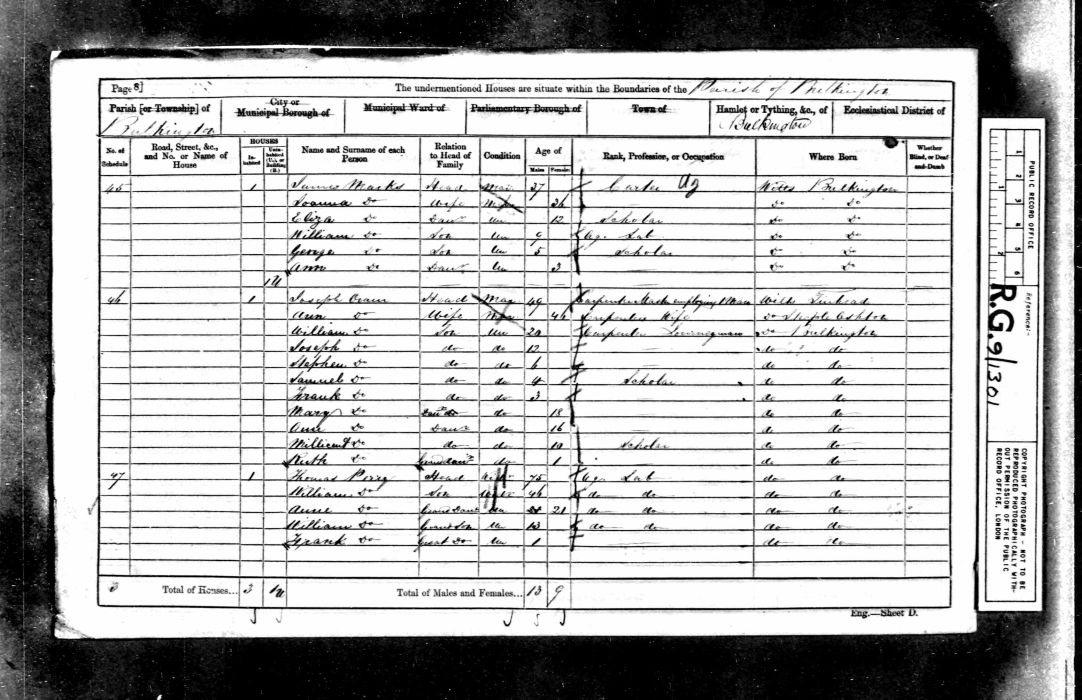 Page 8]
The undermentioned Houses are situate within the Boundaries of the Parish of Bulkington
Parish [or Township] of
Bulkington
City or Municipal Borough of
Municipal Ward of
Parliamentary Borough of
Town of
Hamlet or Tything, &c., of
Bulkington
Ecclesiastical District of
No. of Schedule
Road, Street, &c., and No. or Name of House
HOUSES
Inhabited
Uninhabited (U.), or Building (B.)
Name and Surname of each Person
Relation to Head of Family
Condition
Age of
Males
Females
Rank, Profession, or Occupation
Where Born
Whether Blind, or Deaf-and-Dumb
45 1 James Marks Head Mar 37 Carter Ag Wilts Bulkington
Joanna Do Wife 36 Do Do
Eliza Do Daur Un 12 Scholar Do Do
William Do Son Un 9 Ag. Lab Do Do
George Do Son Un 5 Scholar Do Do
Ann Do Daur Un 3 Do Do
1U
46 1 Joseph Head Mar 49 Carpenter Mastr employing 1 Man Wilts Tinhead
Ann Do Wife Mar 46 Carpenters Wife Do Steeple Ashton
William Do Son Un 20 Carpenter Journeyman Do Bulkington
Joseph Do do do 12 do do
Stephen Do do do 6 do do
Samuel Do do do 4 Scholar do do
Frank Do do do 3 do do
Mary Do Daur do 18 do do
Ann Do Daur do 16 do do
Millicent Do do do 10 Scholar do do
Ruth Do Grandaur do 1 do do
47 1 Thomas Perry Head 75 Ag. Lab do do
William Do Son 46 do do do do
Anne Do Grand Daur Un 21 do do do do
William Do Grand Son Un 13 do do do do
Frank Do Great Do Un 1 do do
3 Total of Houses... 3 1U
Total of Males and Females... 13 9
Eng.—Sheet D.
PUBLIC RECORD OFFICE
1 2 3 4 5 6
Reference:-
R.G. 9/1301
COPYRIGHT PHOTOGRAPH - NOT TO BE REPRODUCED PHOTOGRAPHICALLY WITHOUT PERMISSION OF THE PUBLIC RECORD OFFICE, LONDON